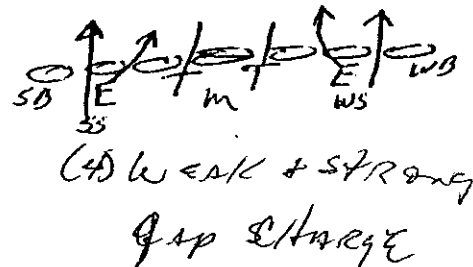 SB E E WB
SS M WS
(4) WEAK & STRONG
GAP CHARGE